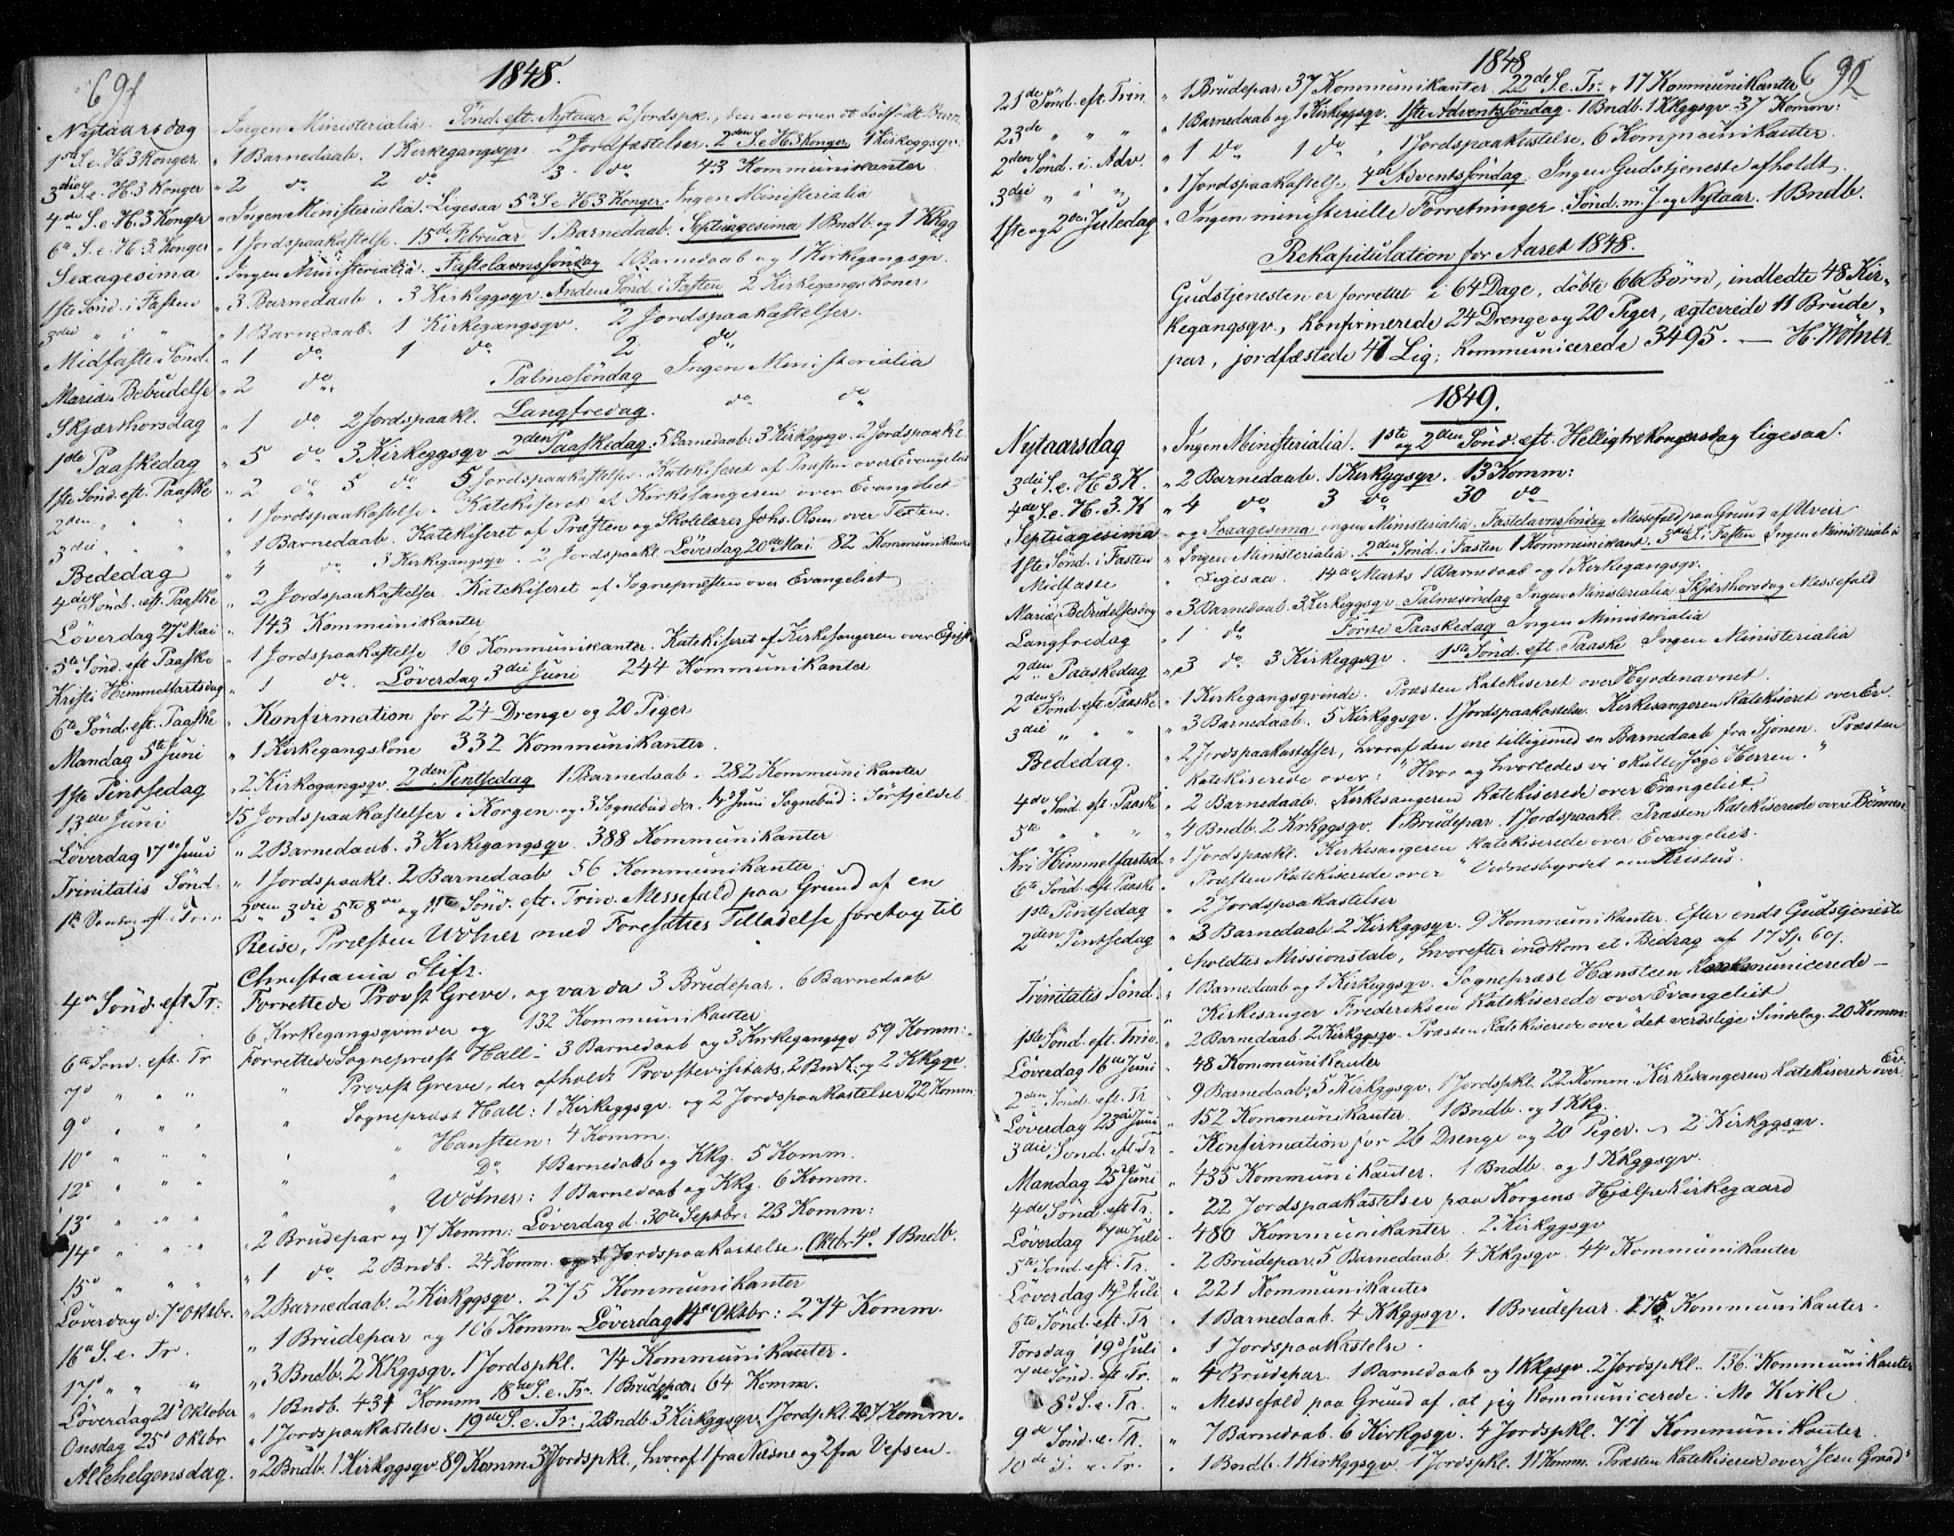 691
1848.
Nytaarsdag Ingen Ministerialia. Sönd. eft. Nytaar 2 Jordspkl., den ene over et dödfödt Barn
1ste S. e. H 3 Konger " 1 Barnedaab. 1 Kirkegangsqv. 2 Jordfæstelser. 2den S. e H 3 Konger 1 Kirkeggsqv:
3die S. e. H. 3 Konger " 2 do 2 do 3. do 43 Kommunikanter
4de S. e. H. 3 Konger " Ingen Ministerialia. Ligesaa 5te S. e H 3 Konger. Ingen Ministerialia
6te S. e. H. 3. Konger " 1 Jordspaakastelse. 15de Februar 1 Barnedaab. Septuagesima 1 Bndb. og 1 KKgg
Sexagesima " Ingen Ministerialia. Fastelavnssöndag 1 Barnedaab og 1 Kirkegangsqv.
1ste Sönd. i Fasten " 3 Barnedaab. 3 Kirkeggsqv. Anden Sönd. i Fasten 2 Kirkegangskoner
3die " i " " 1 Barnedaab. 1 Kirkegangsqv. 2 Jordspaakastelser.
Midfaste Sönd. " 1 do 1 do 2 do
Mariæ Bebudelse " 2 do Palmesöndag Ingen Ministerialia
Skjærthorsdag " 1 do 2 Jordspaakl. Langfredag. do do
1ste Paaskedag " 5 do 3 Kirkeggsqv 2den Paaskedag. 5 Barnedaab. 3 Kirkggsqv. 2 Jordspaakl.
1ste Sönd. eft. Paaske " 2 do 5 do 5 Jordspaakastelser. Katekiseret af Præsten over Evangeliet
2den " " " 1 Jordspaakastelse. Katekiseret af Kirkesangeren over Evangeliet
3die " " " 1 Barnedaab. Katekiseret af Præsten og Skolelærer Johs. Olsen over Texten.
Bededag " 4 do 3 Kirkegangsqv. 2 Jordspaakl. Löverdag 20de Mai 82 Kommunikanter
4de Sönd. eft. Paaske " 2 Jordspaakastelser Katekiseret af Sognepræsten over Evangeliet
Löverdag 27de Mai " 143 Kommunikanter
5te Sönd. eft Paaske " 1 Jordspaakastelse 16 Kommunikanter. Katekiseret af Kirkesangeren over Epist
Kristi Himmelfartsdag " 1 do. Löverdag 3die Juni 244 Kommunikanter
6te Sönd. eft. Paaske " Konfirmation for 24 Drenge og 20 Piger
Mandag 5te Juni " 1 Kirkegangskone 332 Kommunikanter.
1ste Pintsedag " 2 Kirkegangsqv. 2den Pintsedag 1 Barnedaab. 282 Kommunikanter
13de Juni 15 Jordspaakastelser i Korgen og 3 Sognebud der. 14d Juni Sognebud i Sörfjeldet
Löverdag 17de Juni " 2 Barnedaab. 3 Kirkegangsqv. 388 Kommunikanter.
Trinitatis Sönd. " 1 Jordspaakl. 2 Barnedaab 56 Kommunikanter
1ste Söndag eft. Tr. " 2den 3die 5te 8de og 11te Sönd. eft. Trin. Messefald paa Grund af en
Reise, Præsten Wölner med Foresattes Tilladelse foretog til
Christiania Stift.
4de Sönd. eft Tr: Forrettede Provst Greve, og var da 3 Brudepar. 6 Barnedaab
6 Kirkegangsqvinder og 132 Kommunikanter
6te Sönd. eft. Tr Forrettede Sognepræst Hall - 3 Barnedaab og 3 Kirkegangsqv 59 Komm:
7de " " " " Provst Greve, der afholdt Provstevisitats. 2 Bndb. og 2 KKgqv
9de " " " " Sognepræst Hall: 1 Kirkeggsqv. og 2 Jordspaakastelser 22 Komm.
10de " " " " " Hansteen: 4 Komm.
12te " " " " " Do 1 Barnedaab og KKg. 5 Komm.
13de " " " " " Wölner: 1 Barnedaab og KKg. 6 Komm.
14de " " " " 2 Brudepar og 17 Komm: Löverdag d. 30te Septbr: 23 Komm:
15de " " " " 1 do 2 Bndb. 24 Komm. og 1 Jordspaakastelse. Oktbr 4d 1 Bndb.
Löverdag d. 7de Oktbr. " 2 Barnedaab. 2 Kirkggsqv. 275 Kommunikanter
16de S. e. Tr. " 1 Brudepar og 106 Komm. Löverdag 14de Oktbr: 274 Komm.
17de " " " " 3 Bndb. 2 KKggsqv. 1 Jordspkl. 74 Kommunikanter.
Löverdag 21de Oktober " 1 Bndb. 431 Komm 18de S. e. Tr. 1 Brudepar 64 Komm.
Onsdag 25de Oktbr " 1 Jordspaakastelse. 19de S. e. Tr: 2 Bndb. 3 Kirkggsqv. 1 Jordspkl. 267 Komm.
Allehelgensdag. " 2 Bndb. 1 Kirkggsqv 89 Komm 3 Jordspkl., hvoraf 1 fra Næsne og 2 fra Vefsen.
692
1848
21de Sönd. eft. Trin " 1 Brudepar. 37 Kommunikanter. 22de S. e. Tr. " 17 Kommunikanter
23de " " " " 1 Barnedaab og 1 Kirkeggsqv. 1ste Adventssöndag. 1 Bndb. 1 KKggsqv. 37 Komm:
2den Sönd. i. Adv. " 1 do 1 do. 1 Jordspaakastelse, 6 Kommunikanter.
3die " i " " 1 Jordspaakastelse 4de Adventssöndag. Ingen Gudstjeneste afholdt.
1ste og 2den Juledag " Ingen ministerielle Forretninger. Sönd. m. J. og Nytaar. 1 Bndb.
Rekapitulation for Aaret 1848.
Gudstjenesten er forrettet i 64 Dage, döbte 66 Börn, indledte 48 Kir-
kegangsqv., konfirmerede 24 Drenge og 20 Piger, ægteviede 11 Brude-
par, jordfæstede 47 Lig; kommunicerede 3495. — H. Wölner
1849.
Nytaarsdag " Ingen Ministerialia. 1ste og 2den Sönd. eft. Helligtrekongersdag ligesaa
3die S. e. H. 3 K. " 2 Barnedaab. 1 Kirkggsqv. 13 Komm:
4de S. e. H. 3. K " 4 do 3 do 30 do
Septuagesima og Sexagesima ingen Ministerialia. Fastelavnssöndag Messefald paa Grund af Uveir
1ste Sönd. i Fasten " Ingen Ministerialia. 2den Sönd. i Fasten 1 Kommunikant. 3die S. i Fasten Ingen Ministerialia
Midfaste " Ligesaa. 14de Marts 1 Barnedaab og 1 Kirkegangsqv.
Mariæ Bebudelsesdag " 3 Barnedaab. 3 Kirkeggsqv. Palmesöndag Ingen Ministerialia Skjærthorsdag Messefald
Langfredag " 1 do Förste Paaskedag Ingen Ministerialia
2den Paaskedag " 3 do 3 Kirkeggsqv. 1ste Sönd. eft. Paaske Ingen Ministerialia
2den Sönd. eft. Paaske. " 1 Kirkegangsqvinde. Præsten katekiseret over Hyrdenavnet.
3die " " " " 3 Barnedaab. 5 Kirkggsqv. 1 Jordspaakastelse. Kirkesangeren katekiseret over Ev.
Bededag. " 2 Jordspaakastelser, hvoraf den ene tilligemed en Barnedaab fra Sjonen. Præsten
katekiserede over: "Hvor og hvorledes vi skulle söge Herren."
4de Sönd. eft. Paaske " 2 Barnedaab. Kirkesangeren katekiserede over Evangeliet.
5te " " " " 4 Bndb. 2 Kirkggsqv. 1 Brudepar. 1 Jordspaakl. Præsten katekiserede over Bönnen
Kri Himmelfartsd. " 1 Jordspaakl. Kirkesangeren katekiserede over Evangeliet.
6te Sönd. eft. Paaske " Præsten katekiserede over "Vidnesbyrdet om Kristus.
1ste Pintsedag " 2 Jordspaakastelser
2den Pintsedag " 3 Barnedaab 2 Kirkggsqv. 9 Kommunikanter. Efter endt Gudstjeneste
holdtes Missionstale, hvorefter indkom et Bidrag af 17 Sp. 60 s.
Trinitatis Sönd. " 1 Barnedaab og 1 Kirkggsqv. Sognepræst Hansteen kommunicerede —
" Kirkesanger Frederiksen katekiserede over Evangeliet
1ste Sönd. eft. Trin. " 2 Barnedaab. 2 Kirkggsqv. Præsten katekiserede over "det verdslige Sindelag. 20 Komm:
Löverdag 16de Juni " 48 Kommunikanter
2den Sönd. eft. Tr " 9 Barnedaab, 5 Kirkggsqv. 1 Jordspkl. 22 Komm. Kirkesangeren katekiserede over Ev.
Löverdag 23de Juni " 152 Kommunikanter 1 Bndb. og 1 KKg.
3die Sönd. eft. Tr " Konfirmation for 26 Drenge og 20 Piger. 2 Kirkggsqv.
Mandag 25de Juni " 435 Kommunikanter. 1 Bndb. og 1 KKggsqv.
4de Sönd. eft. Tr. " 22 Jordspaakastelser paa Korgens Hjelpekirkegaard
Löverdag 7de Juli " 480 Kommunikanter. 2 Kirkggsqv
5te Sönd. eft. Tr. " 2 Brudepar. 5 Barnedaab. 4 KKgsqv. 44 Kommunikanter
Löverdag 14d Juli " 221 Kommunikanter
6te Sönd. eft. Tr " 1 Barnedaab. 4 KKggsqv. 1 Brudepar. 175 Kommunikanter.
Torsdag 19d Juli " 1 Jordspaakastelse.
7de Sönd. eft. Tr. " 4 Brudepar. 1 Barnedaab og 1 KKgsqv. 2 Jordspkl. 136 Kommunikanter
8d S. e. Tr. " Messefald paa Grund af, at jeg kommunicerede i Mo Kirke
9de Sönd. e. Tr. " 7 Barnedaab. 6 Kirkgsqv. 4 Jordspkl. 77 Kommunikanter.
10de S. e. Tr. " 1 Bndb. 1 Kirkggsqv. 1 Jordspkl. 11 Komm. Præsten katekiserede over "Jesu Graad"